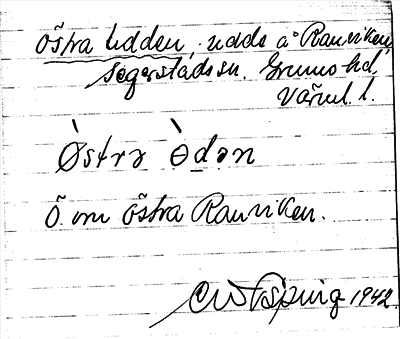 Östra Udden, udde å Ranviken,
Segerstads sn. Grums hd,
Värml. l.
Òstrə Òdən
Ö. om Östra Ranviken.
1942